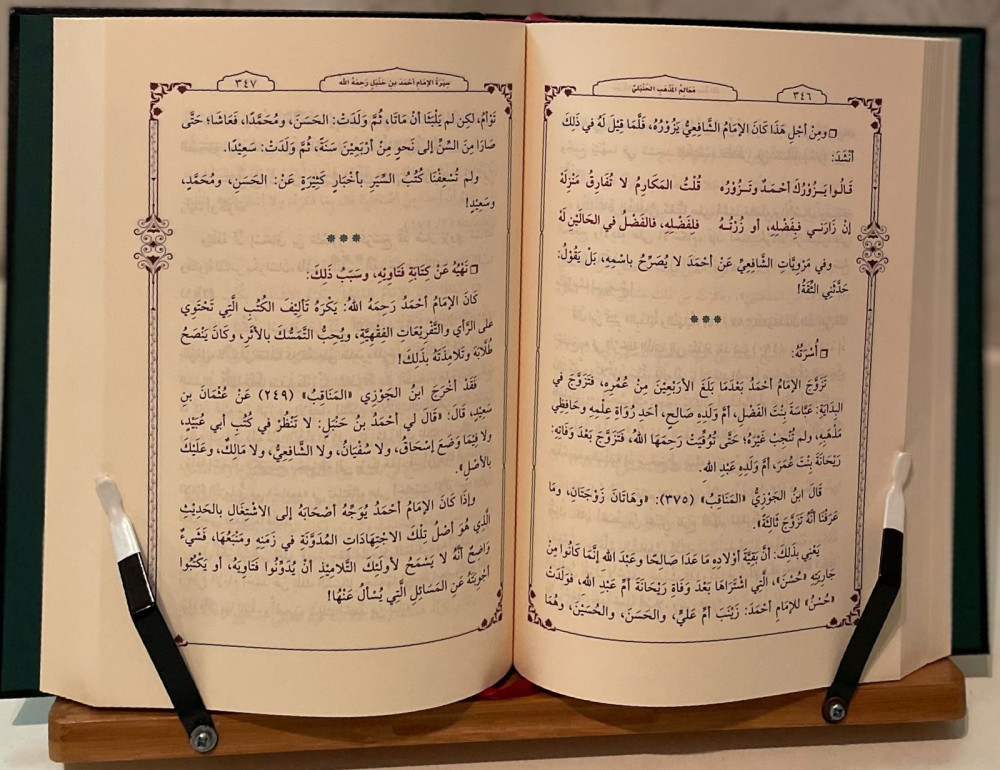 ٣٤٦
مَعَالِمُ المَذْهَبِ الحَنْبَلِيِّ
□ ومِنْ أجْلِ هَذَا كَانَ الإمَامُ الشَّافِعِيُّ يَزُوْرُهُ، فَلَمَّا قِيْلَ لَهُ في ذَلِكَ
أنْشَدَ:
قَـالُـوا يَـزُوْرُكَ أحْـمَـدٌ وتَـزُوْرُه قُلْتُ المَكَارِمُ لا تُفَارِقُ مَنْزِلَهْ
إنْ زَارَنـي فَبِفَضْلِهِ، أو زُرْتُـهُ فلِفَضْلِهِ، فالفَضْلُ في الحَالَيْنِ لَهُ
وفي مَرْوِيَّاتِ الشَّافِعِيِّ عَنْ أحْمَدَ لا يُصَرِّحُ باسْمِهِ، بَلْ يَقُوْلُ:
حَدَّثَنِي الثِّقَةُ!
***
□ أُسْرَتُهُ:
تَزَوَّجَ الإمَامُ أحْمَدُ بَعْدَمَا بَلَغَ الأرْبَعِيْنَ مِنْ عُمُرِهِ، فَتَزَوَّجَ في
البِدَايَةِ: عَبَّاسَةَ بِنْتَ الفَضْلِ، أمَّ وَلَدِهِ صَالِحٍ، أحَدِ رُوَاةِ عِلْمِهِ وحَافِظِي
مَذْهَبِهِ، ولم تُنْجِبْ غَيْرَهُ؛ حَتَّى تُوُفِّيَتْ رَحِمَهَا اللهُ، فَتَزَوَّجَ بَعْدَ وَفَاتِهِا:
رَيْحَانَةَ بِنْتَ عُمَرَ، أمَّ وَلَدِهِ عَبْدِ اللهِ.
قَالَ ابنُ الجَوْزِيُّ «المَنَاقِبُ» (٣٧٥): «وهَاتَانِ زَوْجَتَانِ، ومَا
عَرَفْنَا أنَّهُ تَزَوَّجَ ثَالِثَةً».
يَعْنِي بذَلِكَ: أنَّ بَقِيَّةَ أوْلادِهِ مَا عَدَا صَالحًا وعَبْدَ الله إنَّمَا كَانُوا مِنْ
جَارِيَتِهِ «حُسْنَ»، الَّتِي اشْتَرَاهَا بَعْدَ وَفَاةِ رَيْحَانَةَ أمِّ عَبْدِ الله، فوَلَدَتْ
«حُسْنُ» للإمَامِ أحْمَدَ: زَيْنَبَ أمَّ عَليٍّ، والحَسَنَ، والحُسَيْنَ، وهُمَا
سِيْرَةُ الإمَامِ أحْمَدَ بنِ حَنْبَلٍ رَحِمَهُ الله
٣٤٧
تَوْأمٌ، لكِنْ لم يَلْبَثَا أنْ مَاتَا، ثُمَّ وَلَدَتْ: الحَسَنَ، ومُحَمَّدًا، فَعَاشَا؛ حَتَّى
صَارَا مِنَ السِّنِّ إلى نَحْوٍ مِنْ أرْبَعِيْنَ سَنَةً، ثُمَّ وَلَدَتْ: سَعِيْدًا.
ولم تُسْعِفْنَا كُتُبُ السِّيَرِ بأخْبَارٍ كَثِيْرَةٍ عَنْ: الحَسَنِ، ومُحَمَّدٍ،
وسَعِيْدٍ!
***
□ نَهْيُهُ عَنْ كِتَابَةِ فَتَاوِيْهِ، وسَبَبُ ذَلِكَ:
كَانَ الإمَامُ أحْمَدُ رَحِمَهُ اللهُ: يَكْرَهُ تَألِيْفَ الكُتُبِ الَّتِي تَحْتَوِي
على الرَّأي والتَّفْرِيْعَاتِ الفِقْهِيَّةِ، ويُحِبُّ التَّمَسُّكَ بالأثَرِ، وكَانَ يَنْصَحُ
طُلَّابَهُ وتَلامِذَتَهُ بذَلِكَ!
فَقَدْ أخْرَجَ ابنُ الجَوْزِي «المَنَاقِبُ» (٢٤٩) عَنْ عُثْمَانَ بنِ
سَعِيْدٍ، قَالَ: «قَالَ لي أحْمَدُ بنُ حَنْبَلٍ: لا تَنْظُرْ في كُتُبِ أبي عُبَيْدٍ،
ولا فِيْمَا وَضَعَ إسْحَاقُ، ولا سُفْيَانُ، ولا الشَّافِعِيُّ، ولا مَالِكٌ، وعَلَيْكَ
بالأصْلِ».
وإذَا كَانَ الإمَامُ أحْمَدُ يُوَجِّهُ أصْحَابَهُ إلى الاشْتِغَالِ بالحَدِيْثِ
الَّذِي هُوَ أصْلُ تِلْكَ الاجْتِهَادَاتِ المُدَوَّنَةِ في زَمَنِهِ ومَنْبَعُهَا، فَشَيْءٌ
وَاضِحٌ أنَّهُ لا يَسْمَحُ لأولَئِكَ التَّلامِيْذِ أنْ يُدَوِّنُوا فَتَاوِيْهُ، أو يَكْتُبُوا
أجْوِبَتَهُ عَنِ المَسَائِلِ الَّتِي يُسْألُ عَنْهُا!